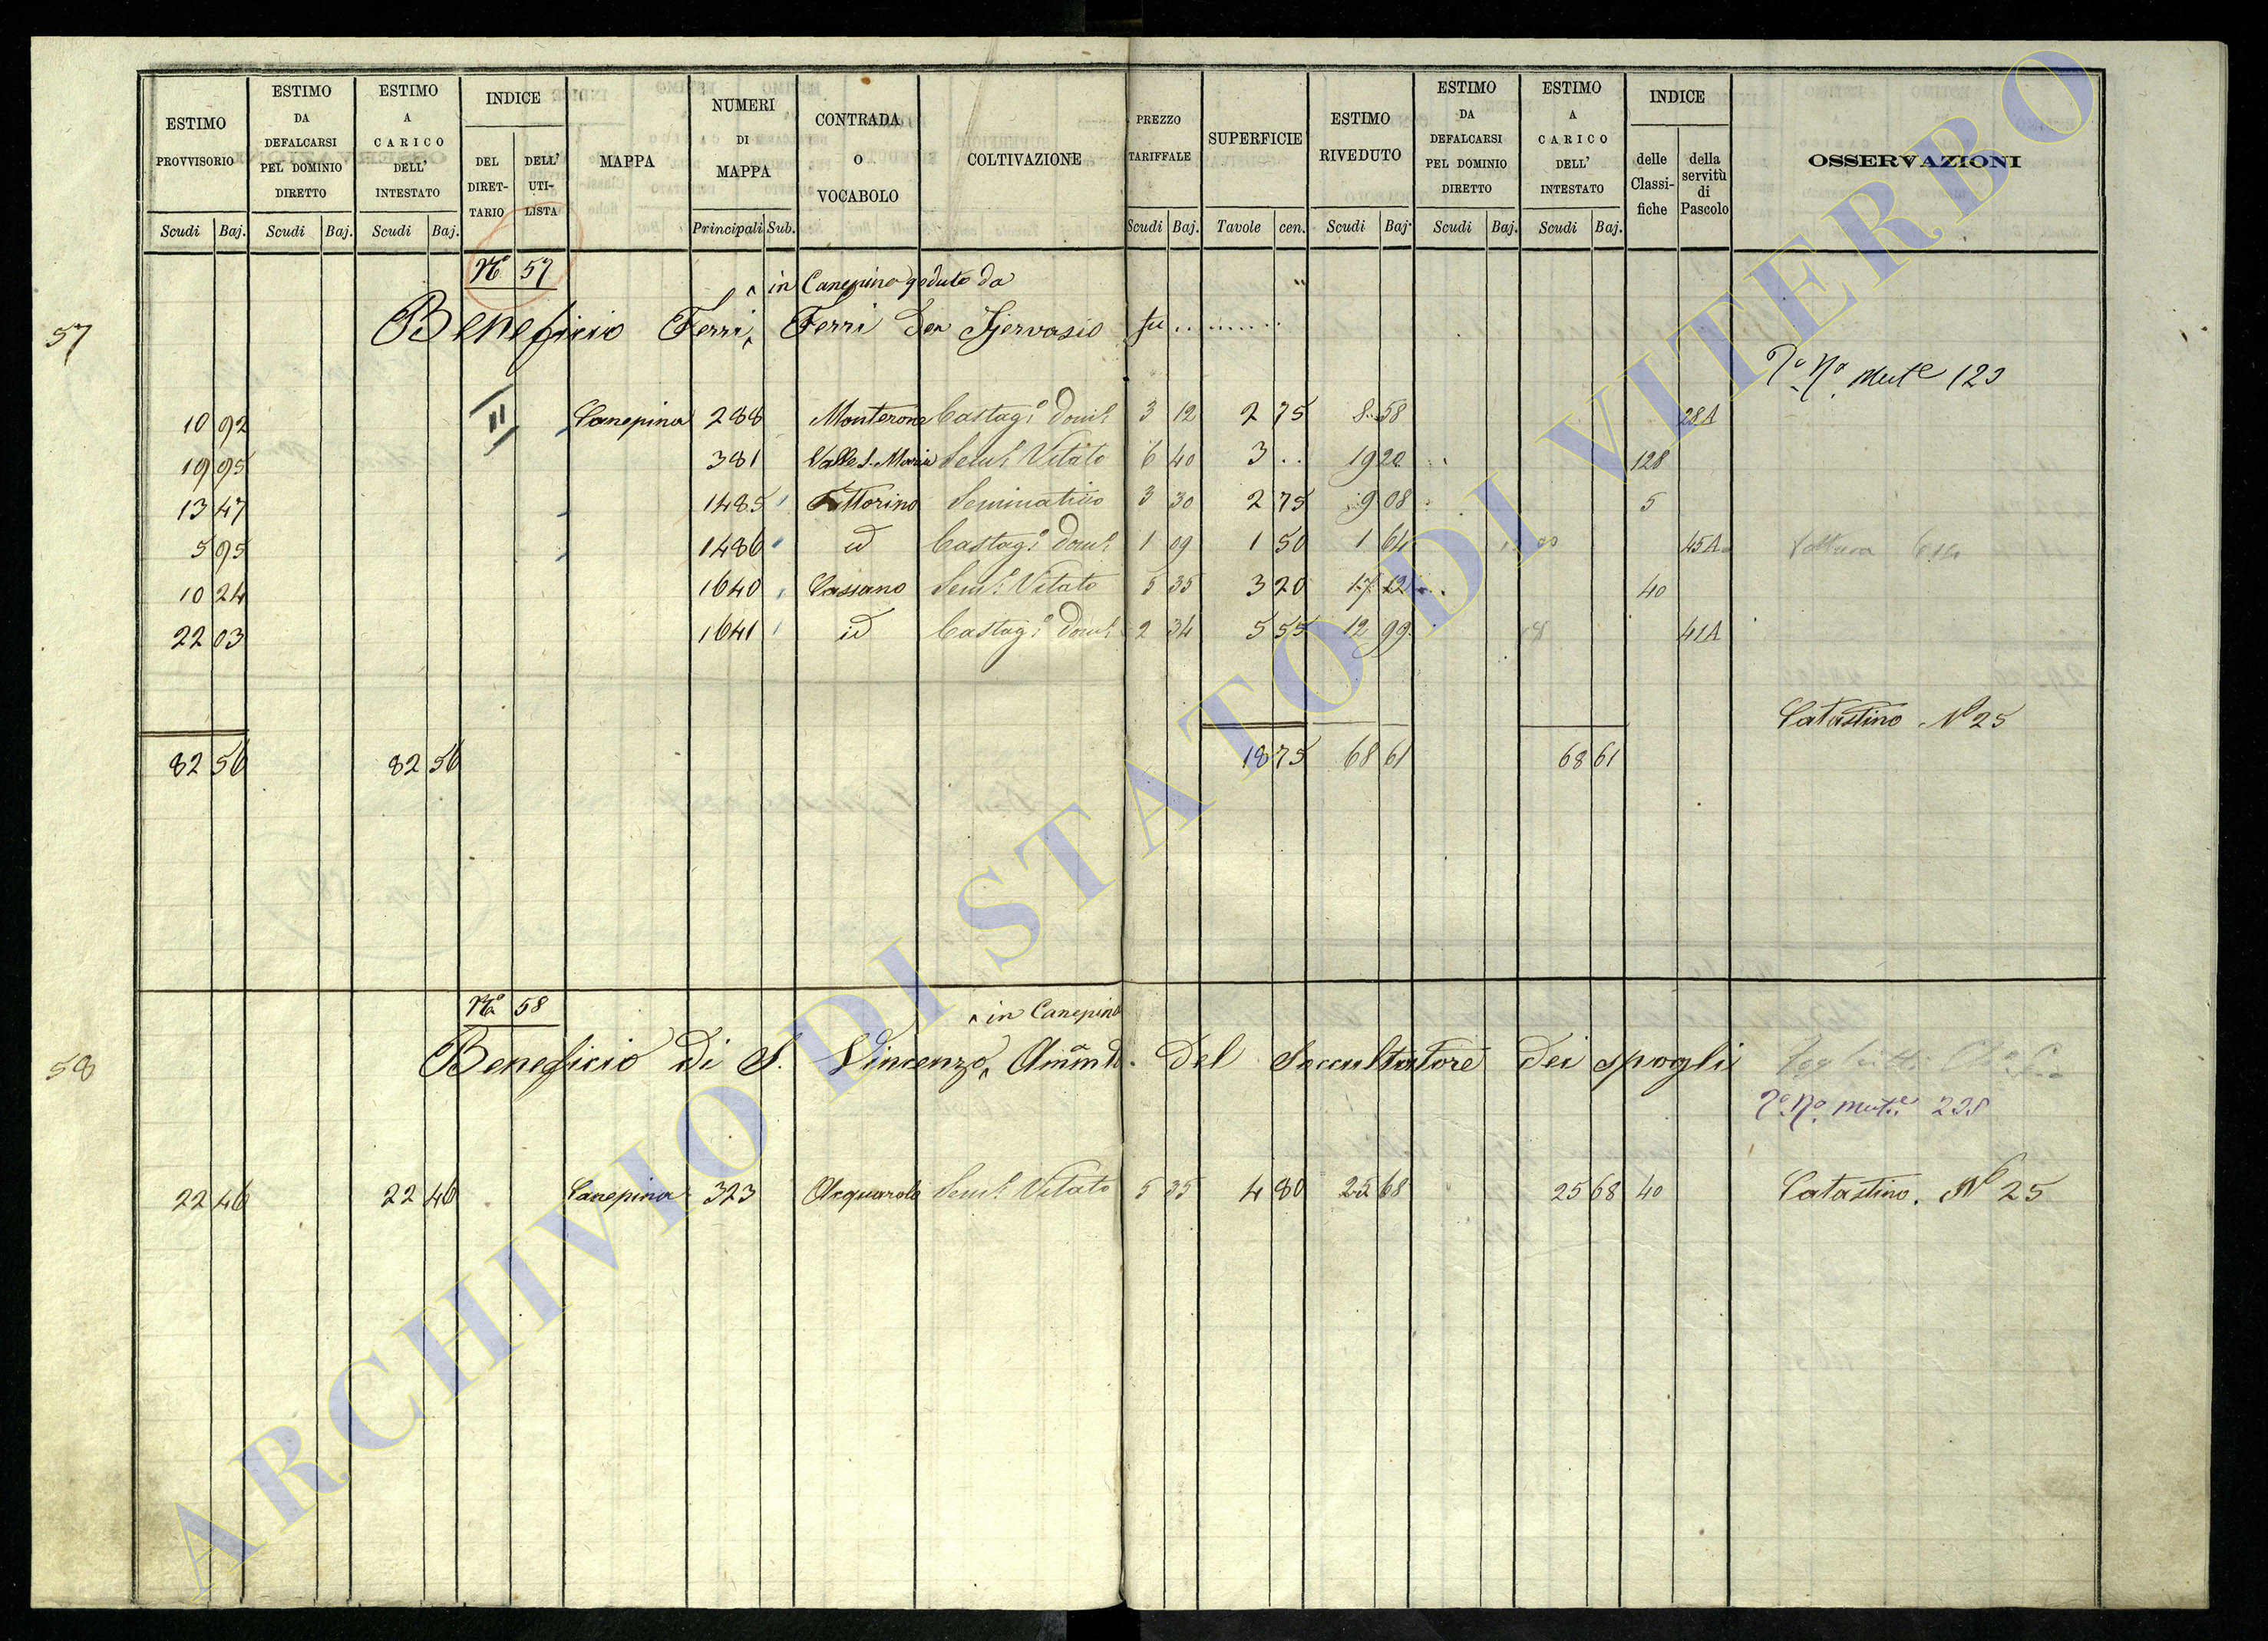 ESTIMO PROVVISORIO | ESTIMO DA DEFALCARSI PEL DOMINIO DIRETTO | ESTIMO A CARICO DELL' INTESTATO | INDICE DEL DIRETTARIO | DELL' UTILISTA | MAPPA | NUMERI DI MAPPA | CONTRADA O VOCABOLO | COLTIVAZIONE | PREZZO TARIFFALE | SUPERFICIE | ESTIMO RIVEDUTO | ESTIMO DA DEFALCARSI PEL DOMINIO DIRETTO | ESTIMO A CARICO DELL' INTESTATO | INDICE delle Classifiche | della servitù di Pascolo | OSSERVAZIONI
Scudi Baj. Scudi Baj. Scudi Baj. Principali Sub. Scudi Baj. Tavole cen. Scudi Baj. Scudi Baj. Scudi Baj.
No 57
in Canepina goduto da
57 Beneficio Ferri Ferri Don Gervasio fu ..........
Po No Mute 123
10 92 Canepina 288 Monterone Castago Domo 3 12 2 75 8 58 28A
19 95 381 Valle S. Maria Semo Vitato 6 40 3 .. 19 20 128
13 47 1485 Fattorino Seminativo 3 30 2 75 9 08 5
5 95 1486 id Castago Domo 1 09 1 50 1 64 45A
10 24 1640 Cassano Semo Vitato 5 35 3 20 17 12 40
22 03 1641 id Castago Domo 2 34 5 55 12 99 41A
Catastino No 25
82 56 82 56 18 75 68 61 68 61
No 58
in Canepina
58 Beneficio di S. Vincenzo Ammto. del Succultatore dei spogli
Po No Mute 235
22 46 22 46 Canepina 323 Acquarola Semo Vitato 5 35 4 80 25 68 25 68 40 Catastino. No 25
ARCHIVIO DI STATO DI VITERBO